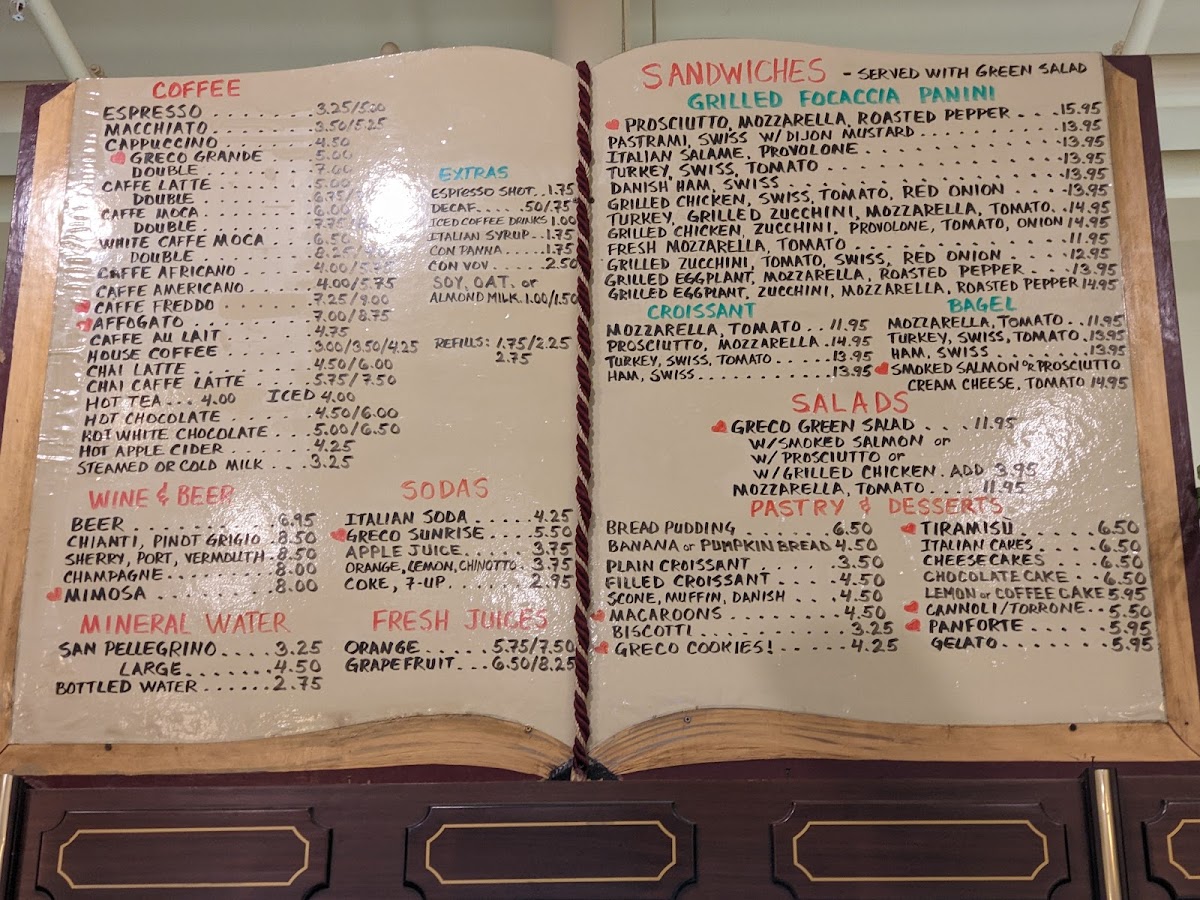 COFFEE
ESPRESSO . . . . . . . 3.25/5.00
MACCHIATO . . . . . . . 3.50/5.25
CAPPUCCINO . . . . . . . 4.50
GRECO GRANDE . . . . 5.00
DOUBLE . . . . . . . 7.00
CAFFE LATTE . . . . . . . 5.00
DOUBLE . . . . . . . 6.75
CAFFE MOCA . . . . . . . 6.00
DOUBLE . . . . . . . 7.75
WHITE CAFFE MOCA . . . . 6.50
DOUBLE . . . . . . . 8.25
CAFFE AFRICANO . . . . . 4.00/5.75
CAFFE AMERICANO . . . . . 4.00/5.75
CAFFE FREDDO 7.25/9.00
AFFOGATO . . . . . . . 7.00/8.75
CAFFE AU LAIT . . . . . . 4.75
HOUSE COFFEE . . . . . . 3.00/3.50/4.25
CHAI LATTE . . . . . . . 4.50/6.00
CHAI CAFFE LATTE . . . . 5.75/7.50
HOT TEA . . . 4.00 ICED 4.00
HOT CHOCOLATE . . . . . . 4.50/6.00
HOT WHITE CHOCOLATE . . . 5.00/6.50
HOT APPLE CIDER . . . . . 4.25
STEAMED OR COLD MILK . . . 3.25
EXTRAS
ESPRESSO SHOT . . 1.75
DECAF . . . . . .50/.75
ICED COFFEE DRINKS 1.00
ITALIAN SYRUP . . 1.75
CON PANNA . . . . 1.75
CON VOV . . . . . 2.50
SOY, OAT, or
ALMOND MILK 1.00/1.50
REFILLS: 1.75/2.25
2.75
WINE & BEER
BEER . . . . . . . . . 6.95
CHIANTI, PINOT GRIGIO . 8.50
SHERRY, PORT, VERMOUTH . 8.50
CHAMPAGNE . . . . . . . 8.00
MIMOSA . . . . . . . . 8.00
SODAS
ITALIAN SODA . . . . . 4.25
GRECO SUNRISE . . . . . 5.50
APPLE JUICE . . . . . . 3.75
ORANGE, LEMON, CHINOTTO . 3.75
COKE, 7-UP . . . . . . 2.95
MINERAL WATER
SAN PELLEGRINO . . . . 3.25
LARGE . . . . . . . 4.50
BOTTLED WATER . . . . . . 2.75
FRESH JUICES
ORANGE . . . . . . 5.75/7.50
GRAPEFRUIT . . . 6.50/8.25
SANDWICHES - SERVED WITH GREEN SALAD
GRILLED FOCACCIA PANINI
PROSCIUTTO, MOZZARELLA, ROASTED PEPPER . . . . 15.95
PASTRAMI, SWISS W/ DIJON MUSTARD . . . . . . . . 13.95
ITALIAN SALAME, PROVOLONE . . . . . . . . . . . 13.95
TURKEY, SWISS, TOMATO . . . . . . . . . . . . . 13.95
DANISH HAM, SWISS . . . . . . . . . . . . . . . 13.95
GRILLED CHICKEN, SWISS, TOMATO, RED ONION . . . . 13.95
TURKEY, GRILLED ZUCCHINI, MOZZARELLA, TOMATO . . 14.95
GRILLED CHICKEN, ZUCCHINI, PROVOLONE, TOMATO, ONION 14.95
FRESH MOZZARELLA, TOMATO . . . . . . . . . . . . 11.95
GRILLED ZUCCHINI, TOMATO, SWISS, RED ONION . . . . 12.95
GRILLED EGGPLANT, MOZZARELLA, ROASTED PEPPER . . . 13.95
GRILLED EGGPLANT, ZUCCHINI, MOZZARELLA, ROASTED PEPPER 14.95
CROISSANT
MOZZARELLA, TOMATO . . 11.95
PROSCIUTTO, MOZZARELLA . 14.95
TURKEY, SWISS, TOMATO . . . 13.95
HAM, SWISS . . . . . . . . 13.95
BAGEL
MOZZARELLA, TOMATO . . . 11.95
TURKEY, SWISS, TOMATO . 13.95
HAM, SWISS . . . . . . . 13.95
SMOKED SALMON OR PROSCIUTTO
CREAM CHEESE, TOMATO 14.95
SALADS
GRECO GREEN SALAD . . . 11.95
W/SMOKED SALMON or
W/ PROSCIUTTO or
W/ GRILLED CHICKEN . ADD 3.95
MOZZARELLA, TOMATO . . . . 11.95
PASTRY & DESSERTS
BREAD PUDDING . . . . . 6.50
BANANA or PUMPKIN BREAD 4.50
PLAIN CROISSANT . . . . . 3.50
FILLED CROISSANT . . . . 4.50
SCONE, MUFFIN, DANISH . . . 4.50
MACAROONS . . . . . . . 4.50
BISCOTTI . . . . . . . . 3.25
GRECO COOKIES! . . . . . 4.25
TIRAMISÚ . . . . . . 6.50
ITALIAN CAKES . . . . . 6.50
CHEESECAKES . . . . . 6.50
CHOCOLATE CAKE . . . 6.50
LEMON or COFFEE CAKE 5.95
CANNOLI/TORRONE . . 5.50
PANFORTE . . . . . . 5.95
GELATO . . . . . . . 5.95